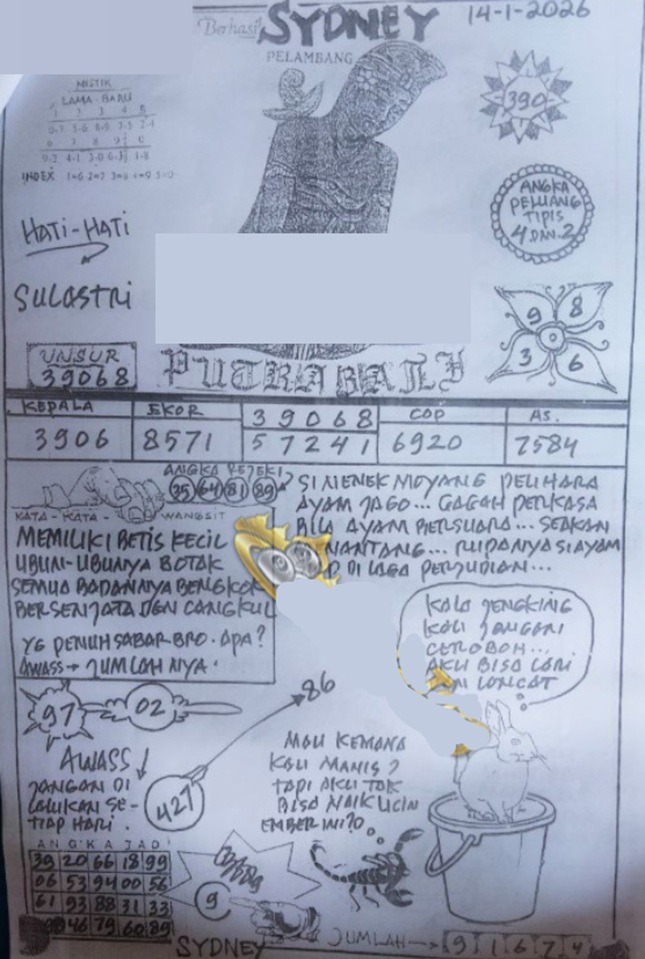 Berhasil SYDNEY 14-1-2026
PELAMBANG
MISTIK
LAMA - BARU
1 2 3 4 5
6 7 8 9 0
INDEX
390
HATI-HATI
SULASTRI
ANGKA
PELUANG
TIPIS
4 DAN 2
9 8
3 6
UNSUR
39068
PUTRA BALI
KEPALA EKOR 39068 COP AS.
3906 8571 57241 6920 7584
ANGKA REJEKI
35 64 81 89
KATA - KATA - WANGSIT
MEMILIKI BETIS KECIL
UBUN-UBUNYA BOTAK
SEMUA BADANNYA BENGKOK
BERSENJATA DGN CANGKUL
YG PENUH SABAR BRO. APA?
AWASS → JUMLAH NYA.
SI NENEK MOYANG PELIHARA
AYAM JAGO... GAGAH PERKASA
BILA AYAM BERSUARA... SEAKAN
NANTANG... RUPANYA SI AYAM
DI LAGA PERJUDIAN...
KALO JENGKING
KAU JANGAN
CEROBOH...
AKU BISA LARI
LONCAT
97 02
86
427
AWASS
JANGAN DI
LAKUKAN SE-
TIAP HARI.
MAU KEMANA
KAU MANIS?
TAPI AKU TAK
BISA NAIK
EMBER INI?
ANGKA JADI
39 20 66 18 99
06 53 94 00 56
61 93 88 31 33
46 79 60 89
9
SYDNEY
JUMLAH → 9 1 6 7 4